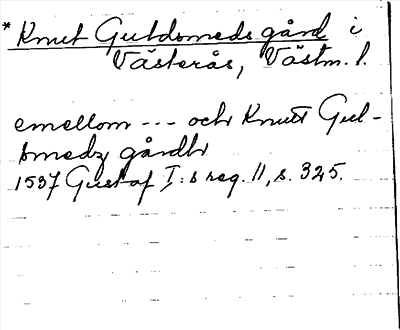 * Knut Guldsmeds gård i
Västerås, Västm. l.
emellom --- och Knutt Gul-
smedz gårdhr
1537 Gustaf I:s reg. 11, s. 325.